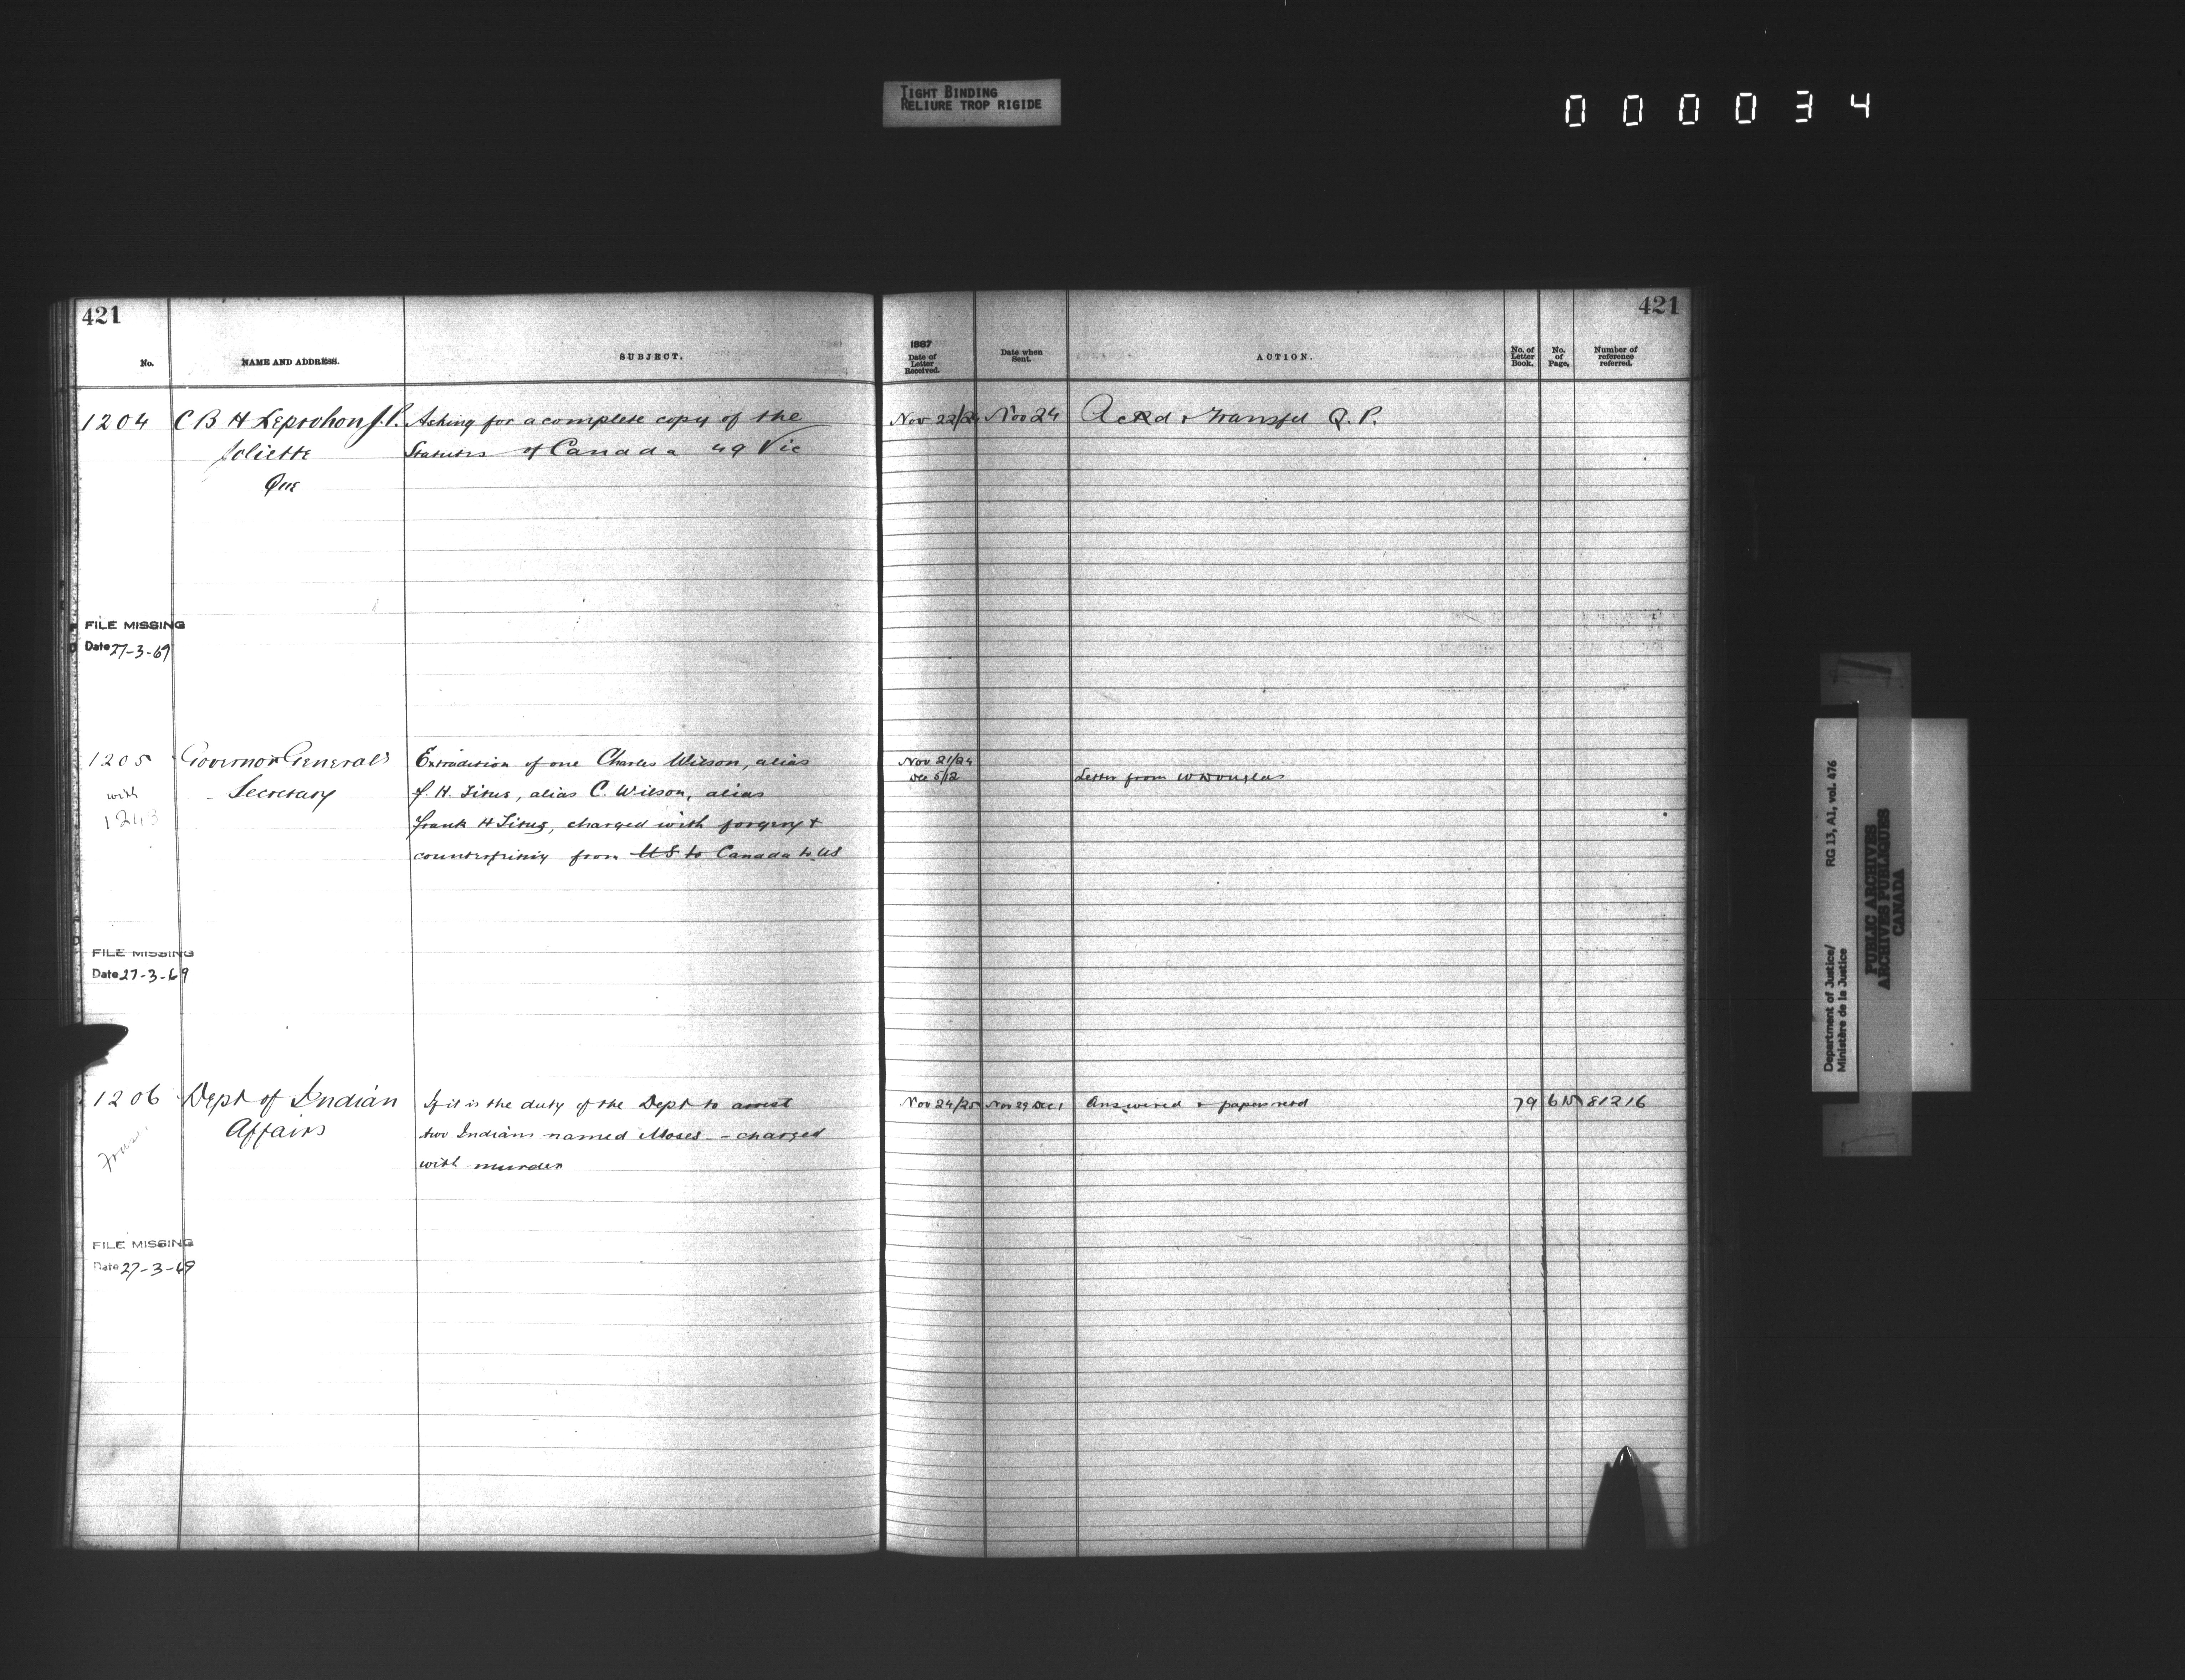 TIGHT BINDING
RELIURE TROP RIGIDE
000034
421
421
No.
NAME AND ADDRESS.
SUBJECT.
1887
Date of Letter Received.
Date when Sent.
ACTION.
No. of Letter Book.
No. of Page.
Number of reference referred.
1204 C B H Leprohon J.P. Asking for a complete copy of the Nov 22/24 Nov 24 Ackd & transfd Q.P.
Joliette Statutes of Canada 49 Vic
Que
FILE MISSING
Date 27-3-69
1205 Governor General's Extradition of one Charles Wilson, alias Nov 21/24
Dec 5/12 Letter from W Douglas
with Secretary F. H. Titus, alias C. Wilson, alias
1243 Frank H Titus, charged with forgery &
counterfeiting from US to Canada to US
FILE MISSING
Date 27-3-69
1206 Dept of Indian If it is the duty of the Dept to arrest Nov 24/25 Nov 29 Dec 1 Answered & papers retd 79 615 81216
Affairs two Indians named Moses - charged
with murder
FILE MISSING
Date 27-3-69
Department of Justice/ RG 13, A1, vol. 476
Ministère de la Justice
PUBLIC ARCHIVES
ARCHIVES PUBLIQUES
CANADA